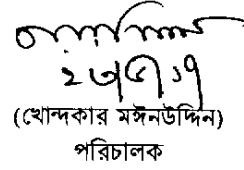 ২৩/৫/১৭
(খোন্দকার মঈনউদ্দিন)
পরিচালক